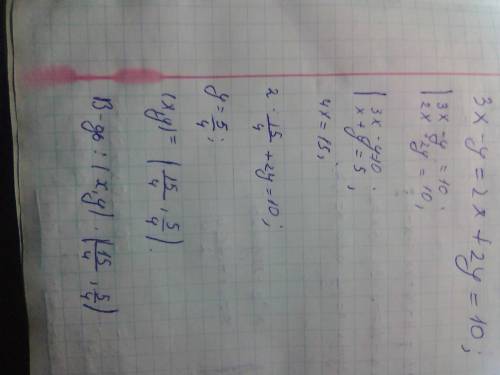 3x-y=2x+2y=10;
{3x-y=10;
2x+2y=10;
{3x-y=10;
x+y=5;
4x=15;
2·15/4+2y=10;
y=5/4;
(x;y)=(15/4;5/4).
В-дь: (x;y).(15/4;5/4)